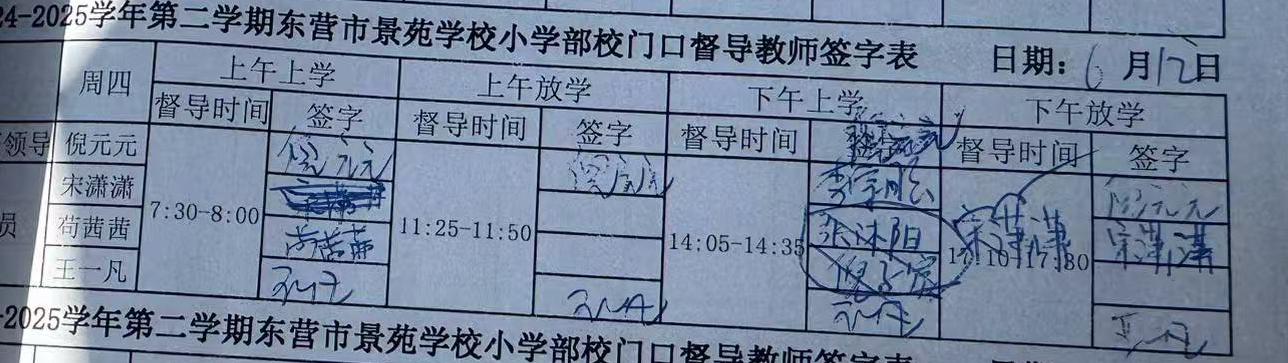 24-2025学年第二学期东营市景苑学校小学部校门口督导教师签字表 日期：6月12日
周四 上午上学 上午放学 下午上学 下午放学
督导时间 签字 督导时间 签字 督导时间 督导时间 签字
领导 倪元元 倪元元 倪元元 倪元元
宋潇潇
7:30-8:00 11:25-11:50 14:05-14:35 17:10-17:30
员 苟茜茜 苟茜茜 张沐阳 宋潇潇 宋潇潇
王一凡 王一凡 王一凡 王一凡 王一凡
-2025学年第二学期东营市景苑学校小学部校门口督导教师签字表